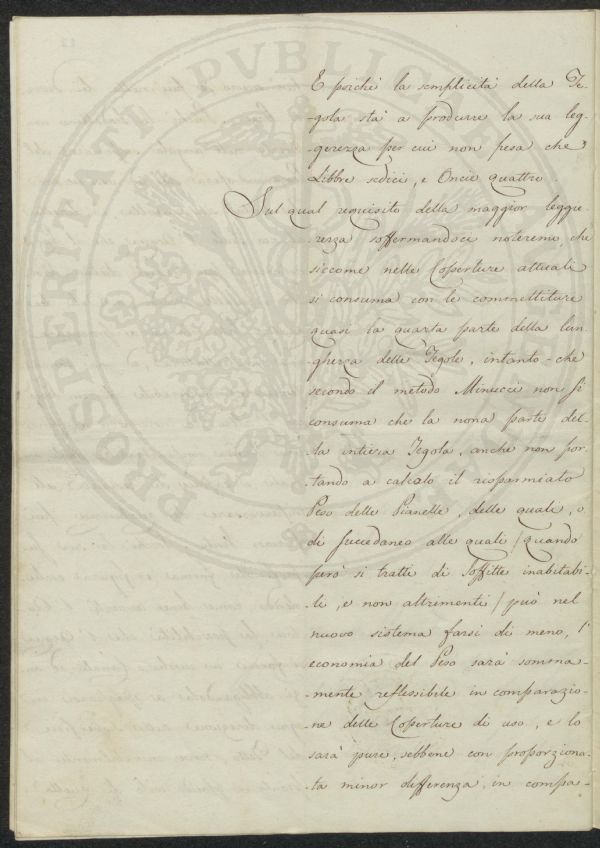 E poichè la semplicità della Te-
-gola stà a produrre la sua leg-
-gerezza per cui non pesa che
Libbre sedici, e Oncie quattro.
Sul qual requisito della maggior legge-
rezza soffermandoci noteremo, che
siccome nelle Coperture attuali
si consuma con le commettiture
quasi la quarta parte della lun
ghezza delle Tegole, intanto-che
secondo il metodo Minucci non si
consuma che la nona parte del-
-la intiera Tegola, anche non por-
tando a calcolo il risparmiato
Peso delle Pianelle, delle quali, o
di succedaneo alle quali / quando
però si tratti di Soffitte inabitabi-
li, e non altrimenti / può nel
nuovo sistema farsi di meno, l'
economia del Peso sarà somma-
-mente reflessibile in comparazio-
ne delle Coperture di uso, e lo
sarà pure, sebbene con proporziona-
-ta minor differenza, in compa-
PROSPERITATI PVBLICAE